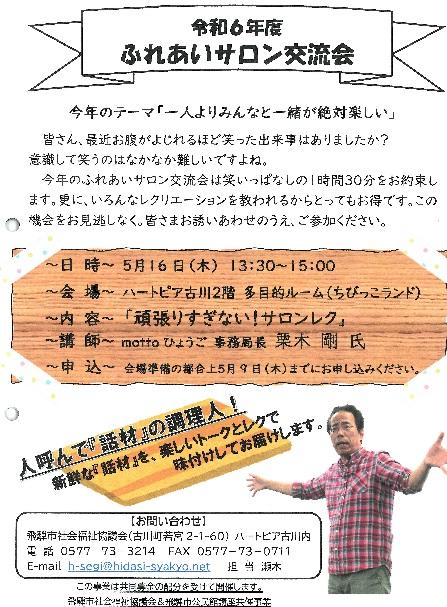 令和6年度
ふれあいサロン交流会
今年のテーマ「一人よりみんなと一緒が絶対楽しい」
皆さん、最近お腹がよじれるほど笑った出来事はありましたか?
意識して笑うのはなかなか難しいですよね。
今年のふれあいサロン交流会は笑いっぱなしの1時間30分をお約束し
ます。更に、いろんなレクリエーションを教われるからとってもお得です。この
機会をお見逃しなく。皆さまお誘いあわせのうえ、ご参加ください。
~日 時~ 5月16日(木) 13:30~15:00
~会 場~ ハートピア古川2階 多目的ルーム(ちびっこランド)
~内 容~ 「頑張りすぎない!サロンレク」
~講 師~ mottoひょうご 事務局長 栗木 剛 氏
~申 込~ 会場準備の都合上5月9日(木)までにお申し込みください。
人呼んで『話材』の調理人!
新鮮な『話材』を、楽しいトークとレクで
味付けしてお届けします。
【お問い合わせ】
飛騨市社会福祉協議会(古川町若宮2-1-60) ハートピア古川内
電 話 0577 73 3214 FAX 0577-73-0711
E-mail h-segi@hidasi-syakyo.net 担 当 瀬木
この事業は共同募金の配分を受けて開催します。
飛騨市社会福祉協議会&飛騨市公民館講座共催事業